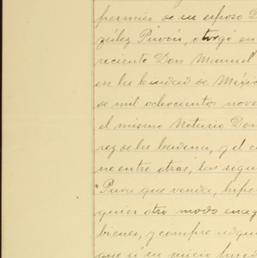 permiso de su esposo D
zález Pavón, otorgó en
reciente Don Manuel
en la ciudad de Méxic
de mil ochocientos nove
el mismo Notario Don
rez de la bandera, y el c
ne entre otras, las segui
"Para que venda, hipo
quier otro modo enage
bienes, y compre adqui